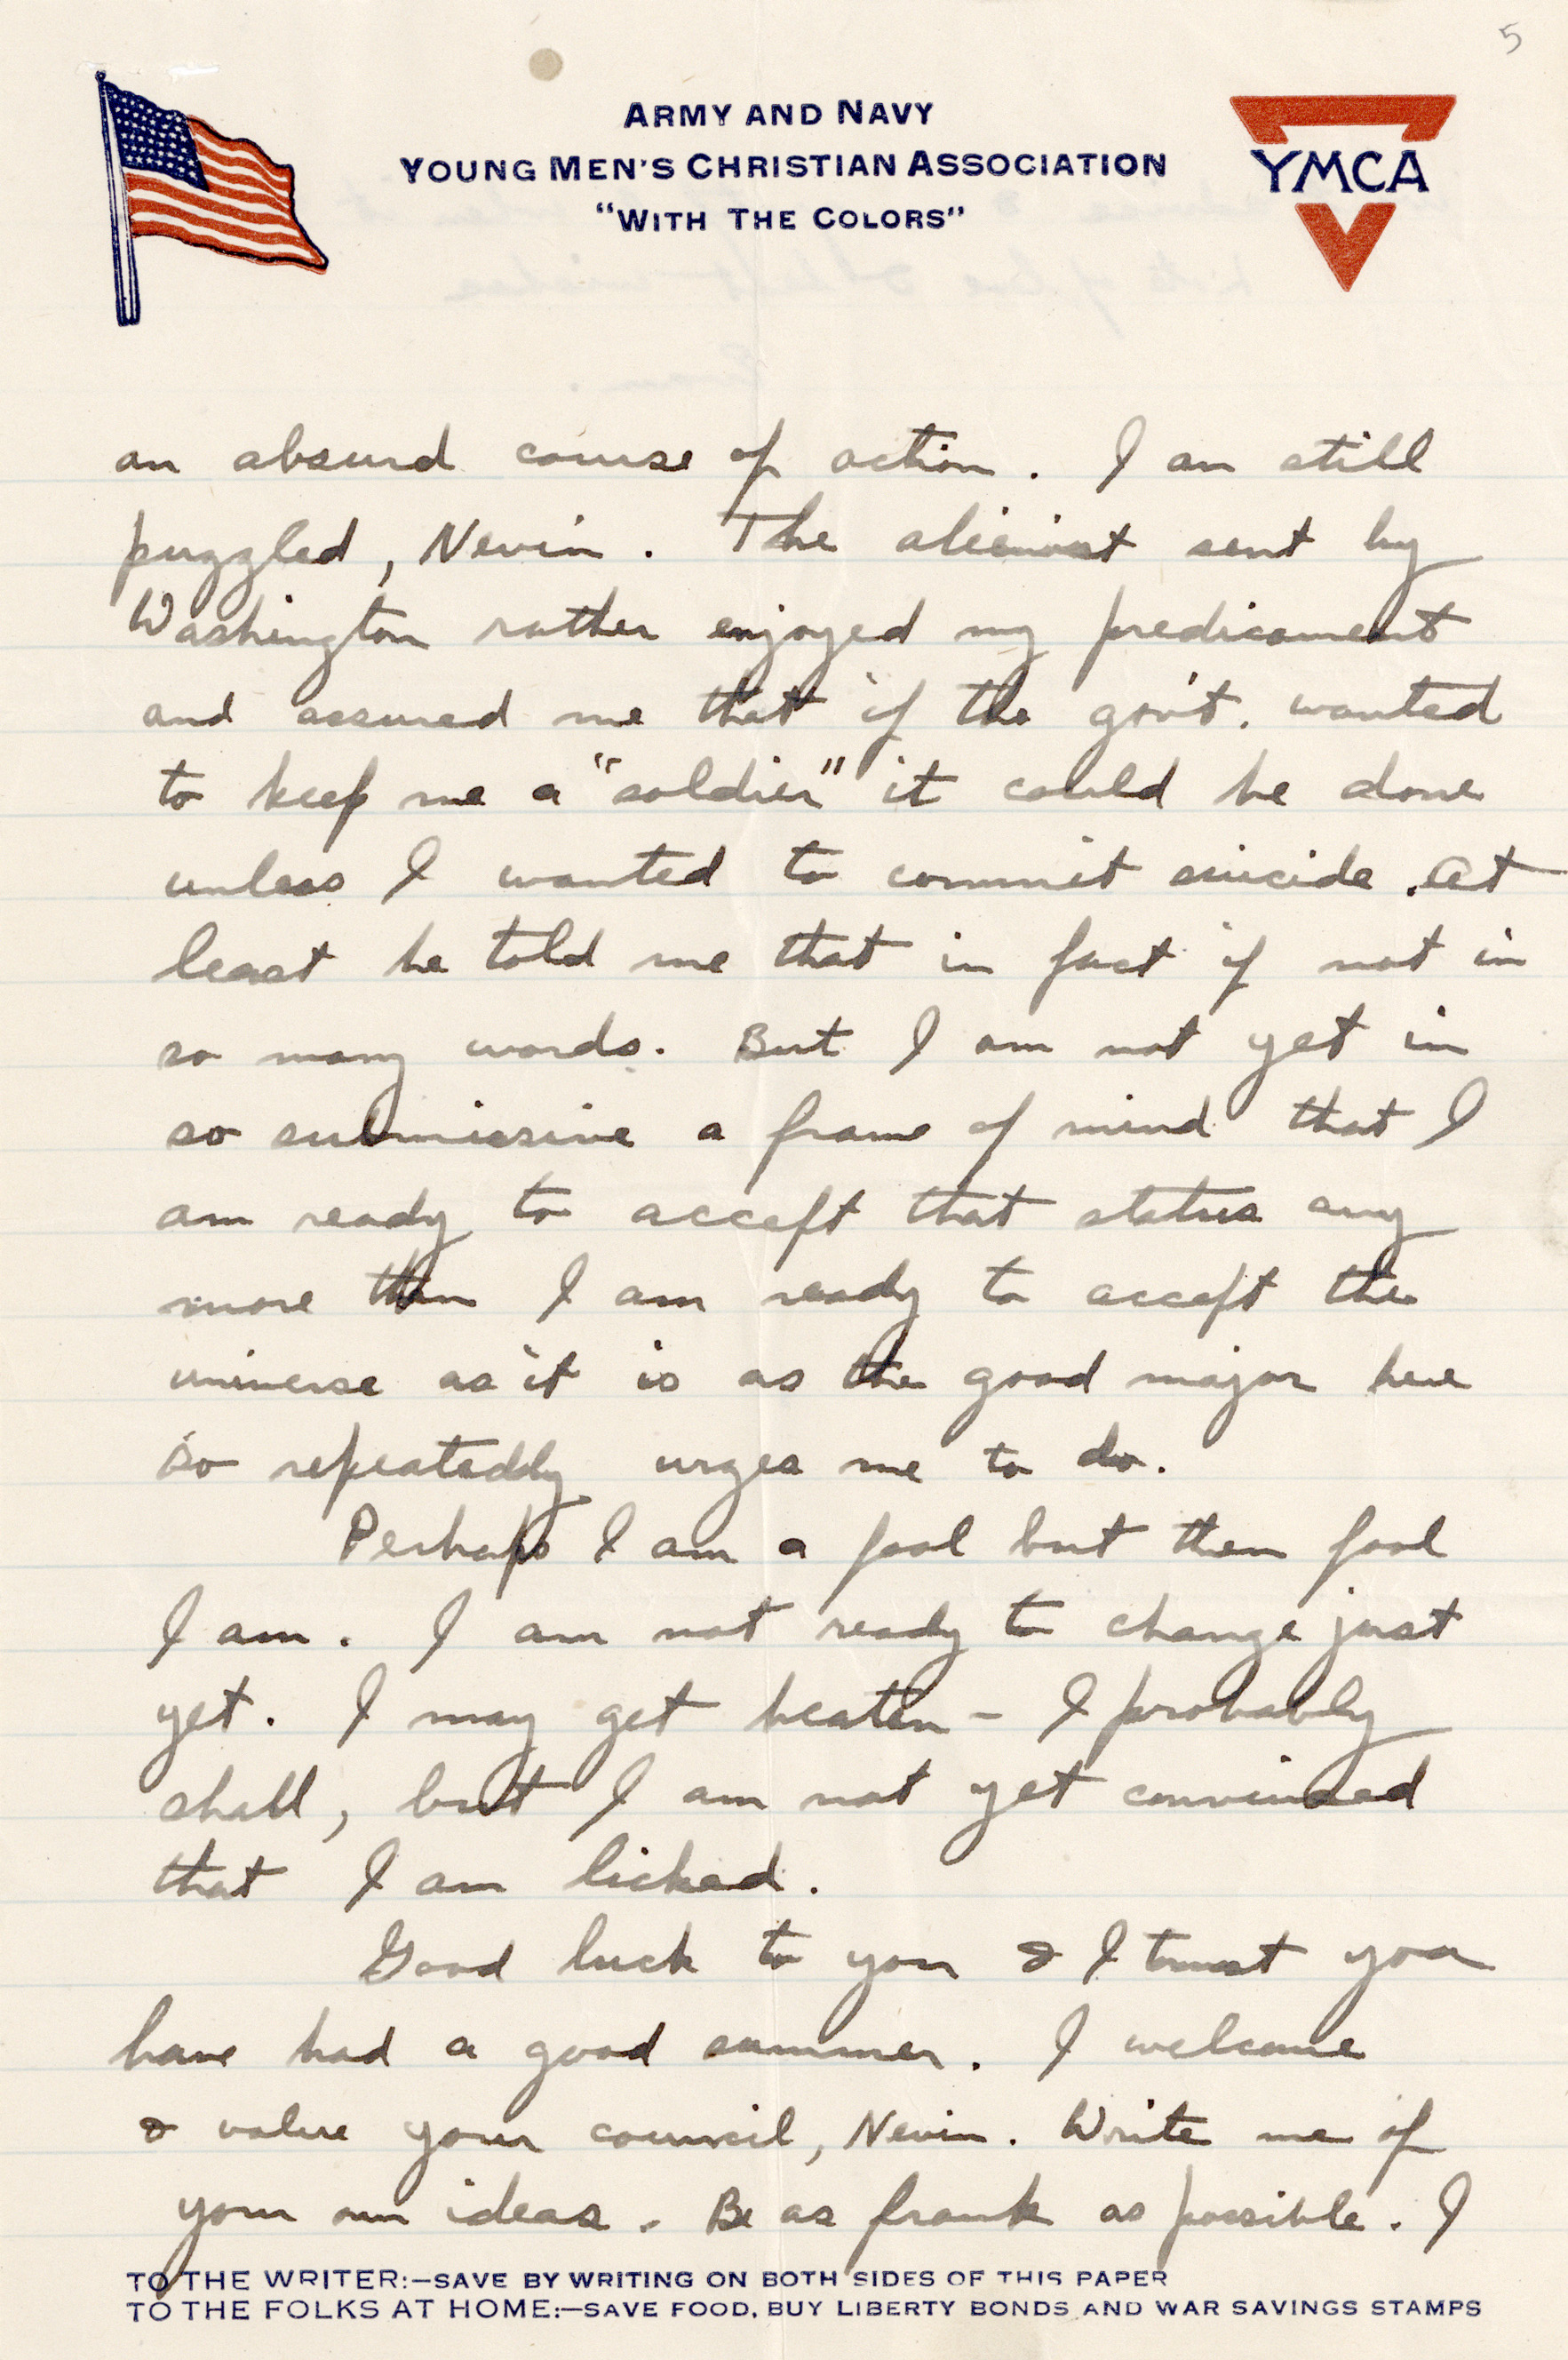 5
ARMY AND NAVY
YOUNG MEN'S CHRISTIAN ASSOCIATION
"WITH THE COLORS"
YMCA
an absurd course of action. I am still
puzzled, Nevin. The alienist sent by
Washington rather enjoyed my predicament
and assured me that if the gov't. wanted
to keep me a "soldier" it could be done
unless I wanted to commit suicide. At
least he told me that in fact if not in
so many words. But I am not yet in
so submissive a frame of mind that I
am ready to accept that status any
more than I am ready to accept the
universe as it is as the good major here
so repeateddy urges me to do.
Perhaps I am a fool but then fool
I am. I am not ready to change just
yet. I may get beaten - I probably
shall, but I am not yet convinced
that I am licked.
Good luck to you & I trust you
have had a good summer. I welcome
& value your council, Nevin. Write me of
your own ideas. Be as frank as possible. I
TO THE WRITER:—SAVE BY WRITING ON BOTH SIDES OF THIS PAPER
TO THE FOLKS AT HOME:—SAVE FOOD, BUY LIBERTY BONDS AND WAR SAVINGS STAMPS